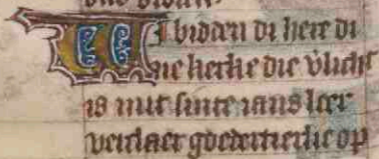 Wi bidden di here di
ne kerke die vlicht
is mit sinte ians leer
verclaer goedertierlic op